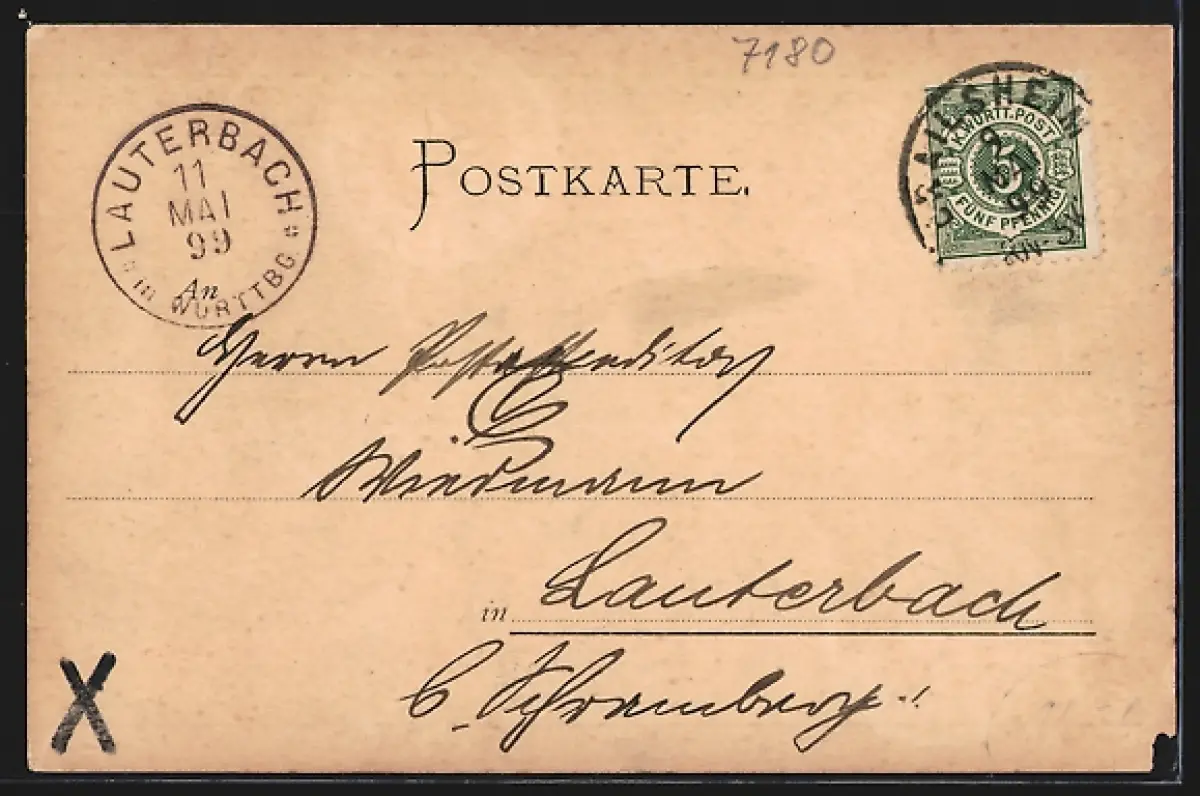 7180
LAUTERBACH
11
MAI
99
in WÜRTTBG
POSTKARTE.
CRAILSHEIM
9
MAI
99
K. WÜRTT. POST
5
FÜNF PFENNIG
An
Herrn Postexpeditor
E.
Wiedmann
in Lauterbach
b. Schramberg.
X